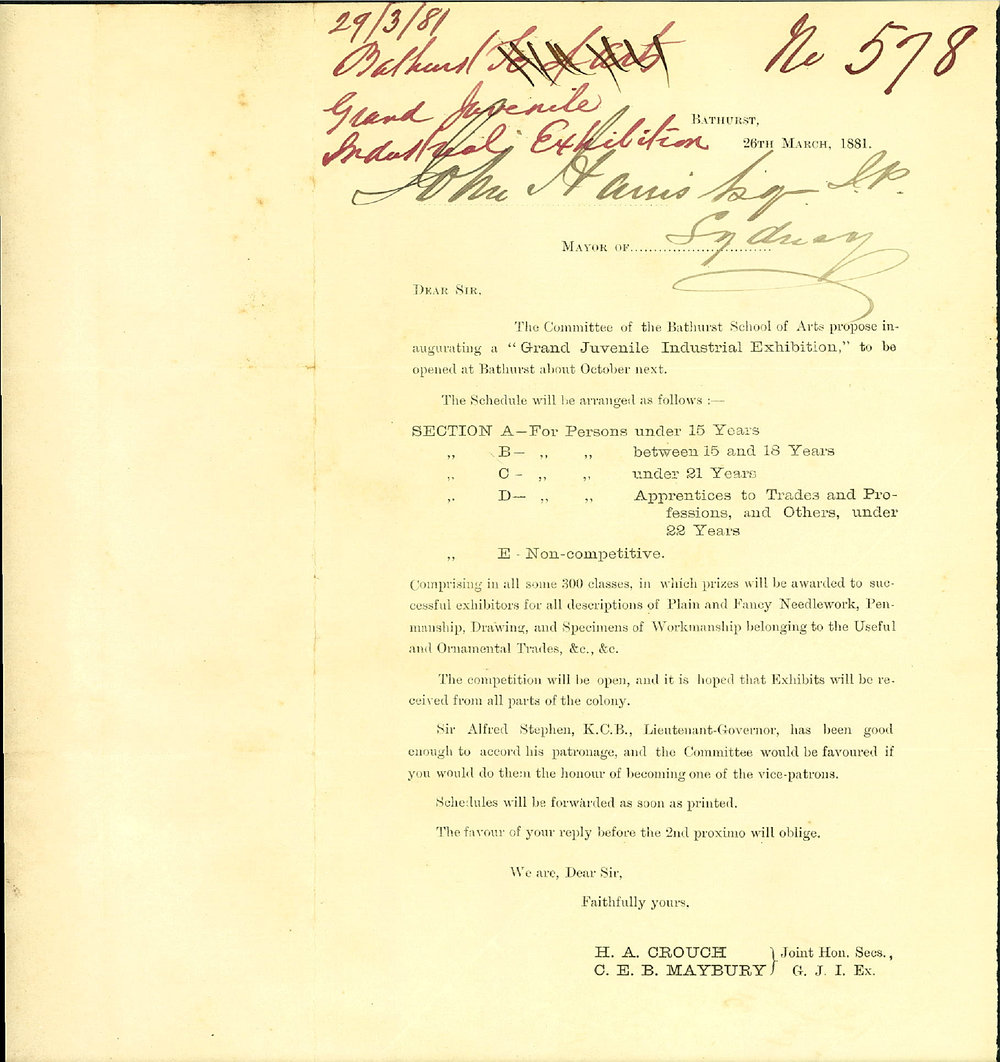 29/3/81
Bathurst
No 578
Grand Juvenile
Industrial Exhibition
BATHURST,
26TH MARCH, 1881.
John Harris Esq J.P.
MAYOR OF..............................
Sydney
DEAR SIR,
The Committee of the Bathurst School of Arts propose in-
augurating a "Grand Juvenile Industrial Exhibition," to be
opened at Bathurst about October next.
The Schedule will be arranged as follows :—
SECTION A—For Persons under 15 Years
„ B— „ „ between 15 and 18 Years
„ C - „ „ under 21 Years
„ D— „ „ Apprentices to Trades and Pro-
fessions, and Others, under
22 Years
„ E - Non-competitive.
Comprising in all some 300 classes, in which prizes will be awarded to suc-
cessful exhibitors for all descriptions of Plain and Fancy Needlework, Pen-
manship, Drawing, and Specimens of Workmanship belonging to the Useful
and Ornamental Trades, &c., &c.
The competition will be open, and it is hoped that Exhibits will be re-
ceived from all parts of the colony.
Sir Alfred Stephen, K.C.B., Lieutenant-Governor, has been good
enough to accord his patronage, and the Committee would be favoured if
you would do them the honour of becoming one of the vice-patrons.
Schedules will be forwarded as soon as printed.
The favour of your reply before the 2nd proximo will oblige.
We are, Dear Sir,
Faithfully yours,
H. A. CROUCH } Joint Hon. Secs.,
C. E. B. MAYBURY } G. J. I. Ex.